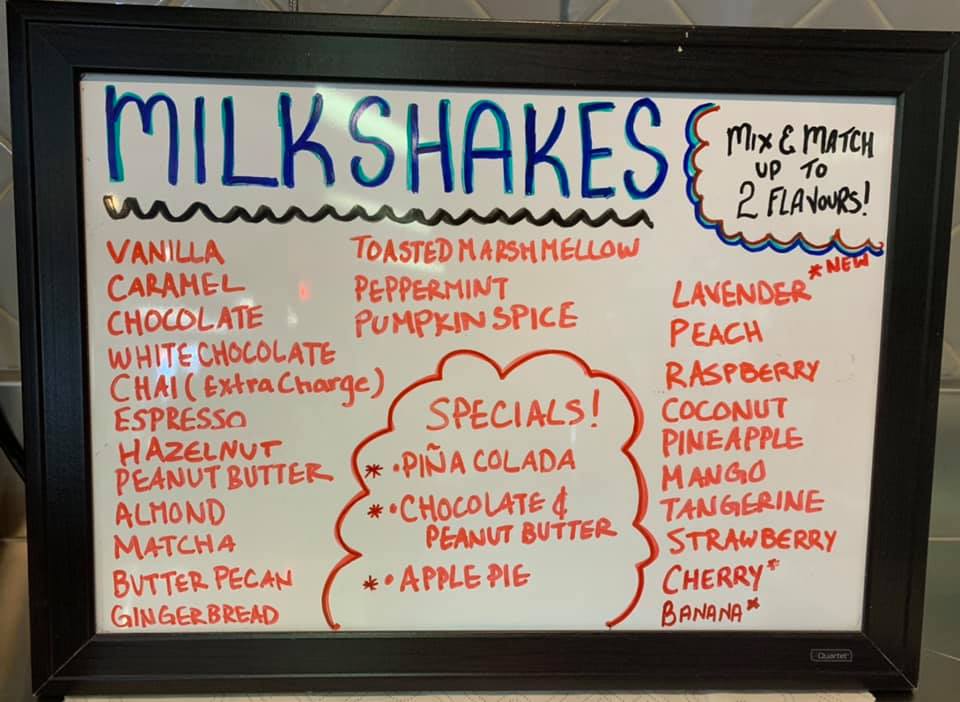 MILKSHAKES
MIX & MATCH
UP TO
2 FLAVOURS!
VANILLA
CARAMEL
CHOCOLATE
WHITE CHOCOLATE
CHAI (Extra Charge)
ESPRESSO
HAZELNUT
PEANUT BUTTER
ALMOND
MATCHA
BUTTER PECAN
GINGERBREAD
TOASTED MARSHMELLOW
PEPPERMINT
PUMPKIN SPICE
SPECIALS!
* • PIÑA COLADA
* • CHOCOLATE &
PEANUT BUTTER
* • APPLE PIE
*NEW
LAVENDER
PEACH
RASPBERRY
COCONUT
PINEAPPLE
MANGO
TANGERINE
STRAWBERRY
CHERRY*
BANANA*
Quartet